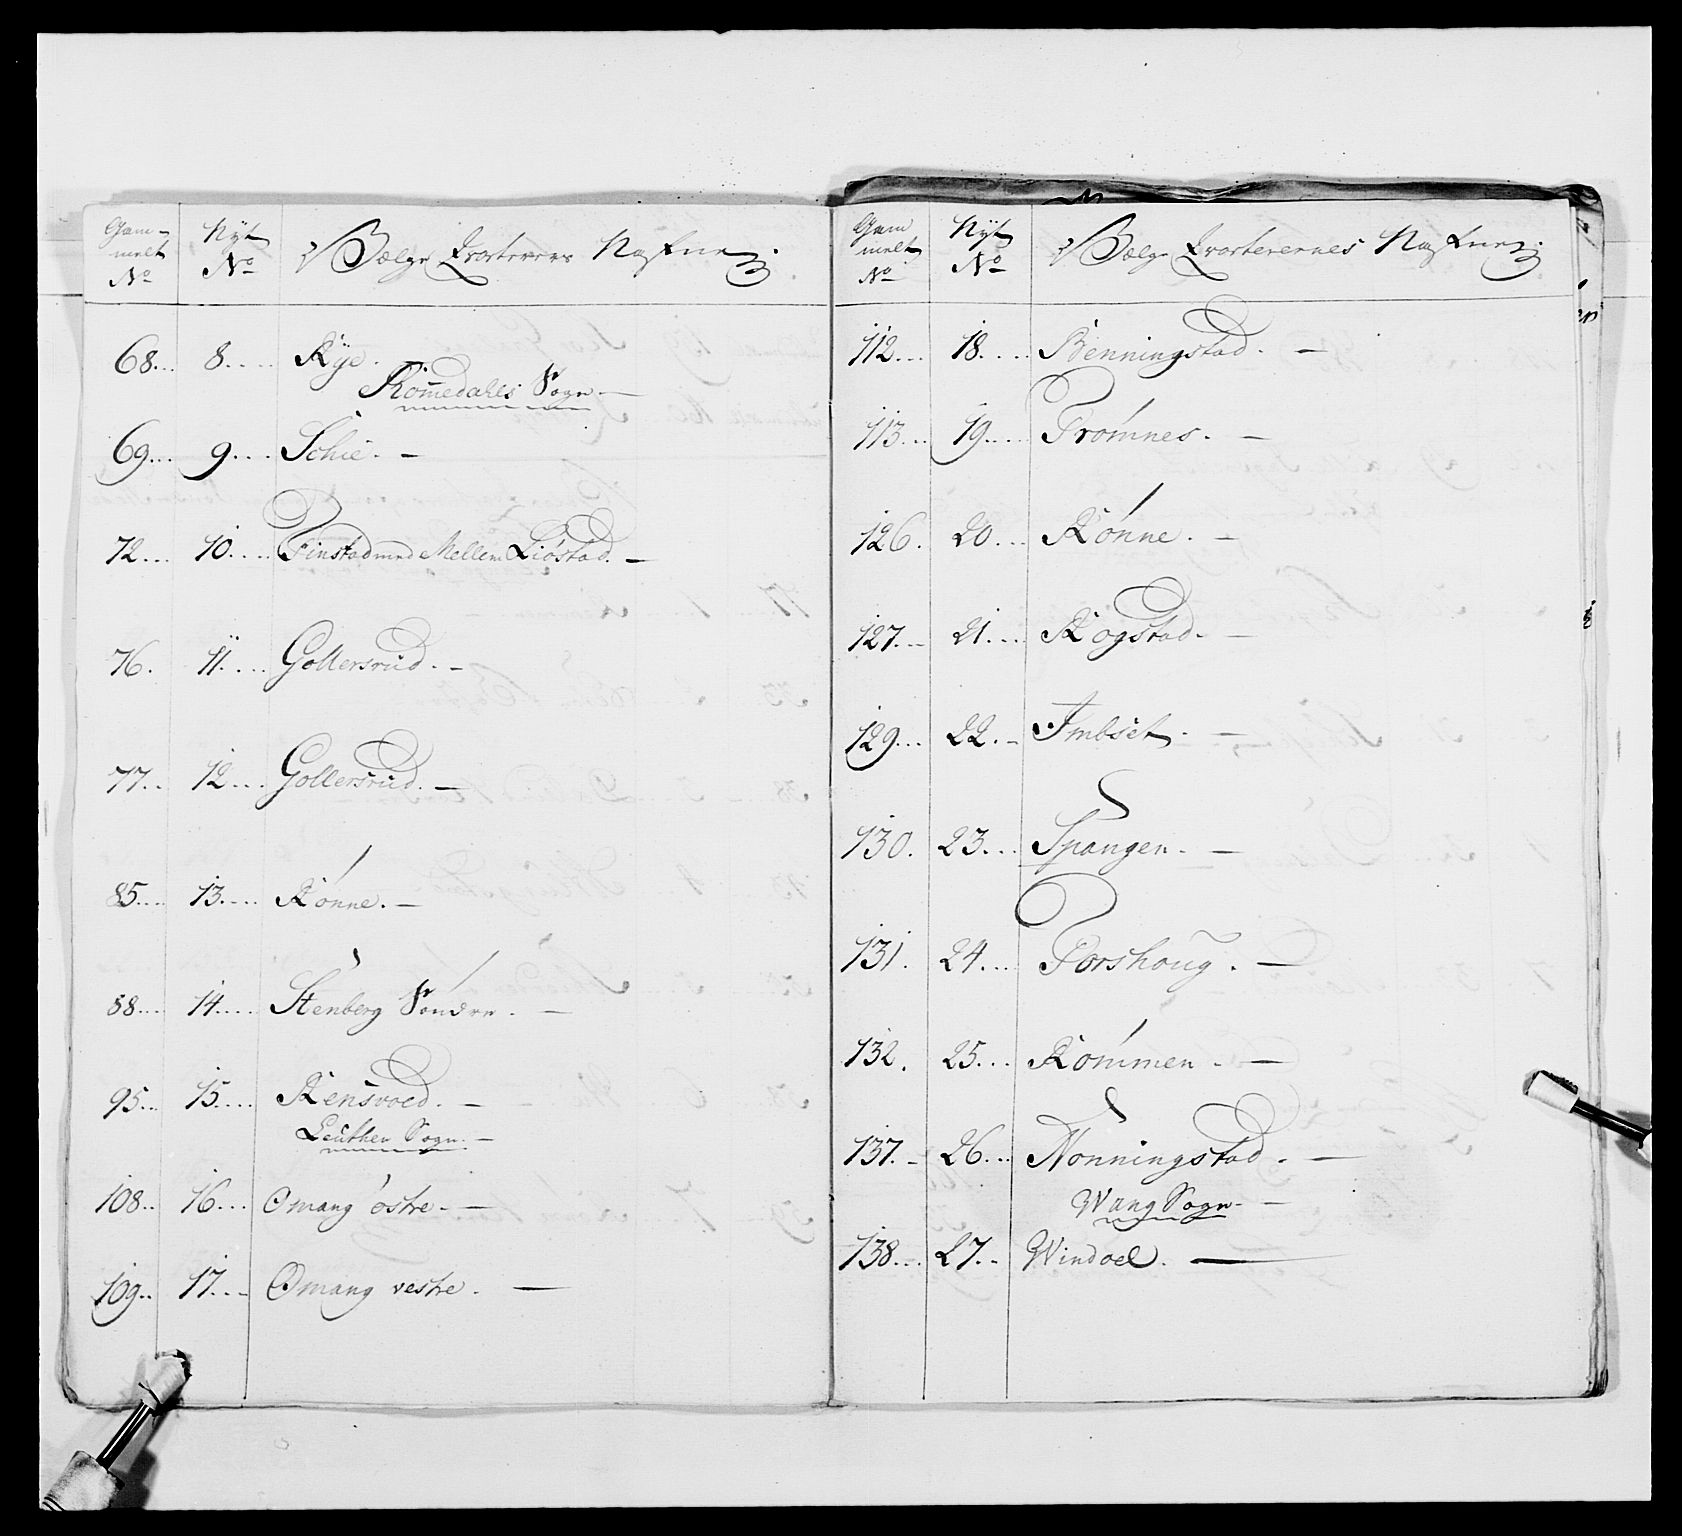 Gam-
melt
No
Nÿt
No
Lægs Qvarterers Nafne
68... 8.... Rÿe.
Rom̄edahls Sogn.—
69... 9... Schie. —
72... 10.... Finstad med Mellem Liöstad. —
76. 11..... Gollersrud. —
77.. 12... Gollersrüd. —
85.... 13.... Rönne. —
88.... 14..... Stenberg Söndre. —
95... 15..... Rensvoed. —
Leuthen Sogn. —
108.. 16.... Omang östre. —
109.. 17... Omang vestre. —
Gam
melt
No
Nÿt
No
Lægs Qvarterernes Nafne
112... 18..... Benningstad. —
113... 19..... Tromnes. —
126. 20.... Rönne. —
127. 21.... Rogstad. —
129... 22. Imbset. —
130. 23... Spangen. —
131. 24.... Torshoug. —
132. 25... Rommen. —
137. 26... Nonningstad. —
Wang Sogn. —
138... 27.. Windoel. —